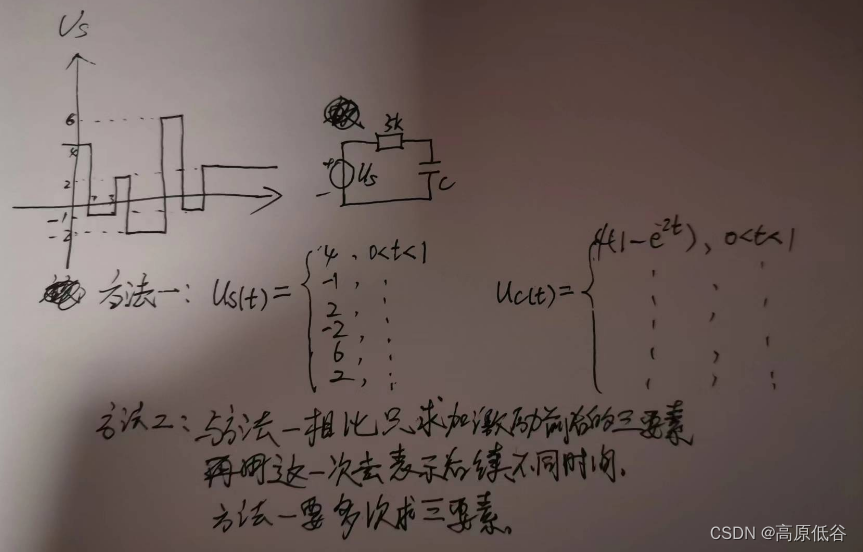 Us
6
4
2
-1
-2
3K
+
Us
-
C
方法一: Us(t)=
4, 0<t<1
-1,
2,
-2,
6,
2,
Uc(t)=
4(1-e^-2t), 0<t<1
方法二: 与方法一相比只求加激励前后的三要素
再用这一次去表示后续不同时间.
方法一要多次求三要素。
CSDN @高原低谷